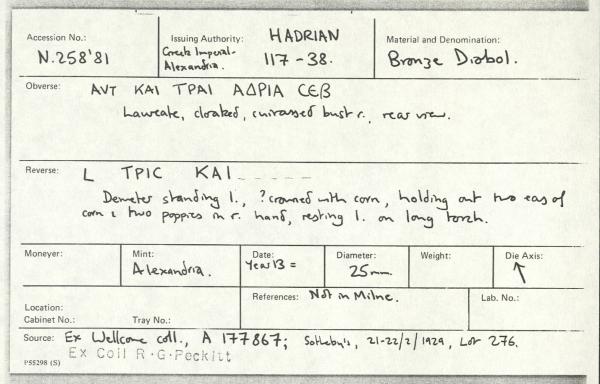 Accession No.:
N.258'81
Issuing Authority: HADRIAN
Greek Imperial- 117-38.
Alexandria.
Material and Denomination:
Bronze Diobol.
Obverse: ΑVΤ ΚΑΙ ΤΡΑΙ ΑΔΡΙΑ CЄΒ
Laureate, cloaked, cuirassed bust r., rear view.
Reverse: L ΤΡΙC ΚΑΙ_ _ _ _ _
Demeter standing l., ?crowned with corn, holding out two ears of
corn & two poppies in r. hand, resting l. on long torch.
Moneyer:
Mint:
Alexandria.
Date:
Year 13 =
Diameter:
25mm.
Weight:
Die Axis:
↑
Location:
Cabinet No.: Tray No.:
References: Not in Milne.
Lab. No.:
Source: Ex Wellcome coll., A 177867; Sotheby's, 21-22/2/1929, Lot 276.
Ex Coll R·G·Peckitt
P55298 (S)